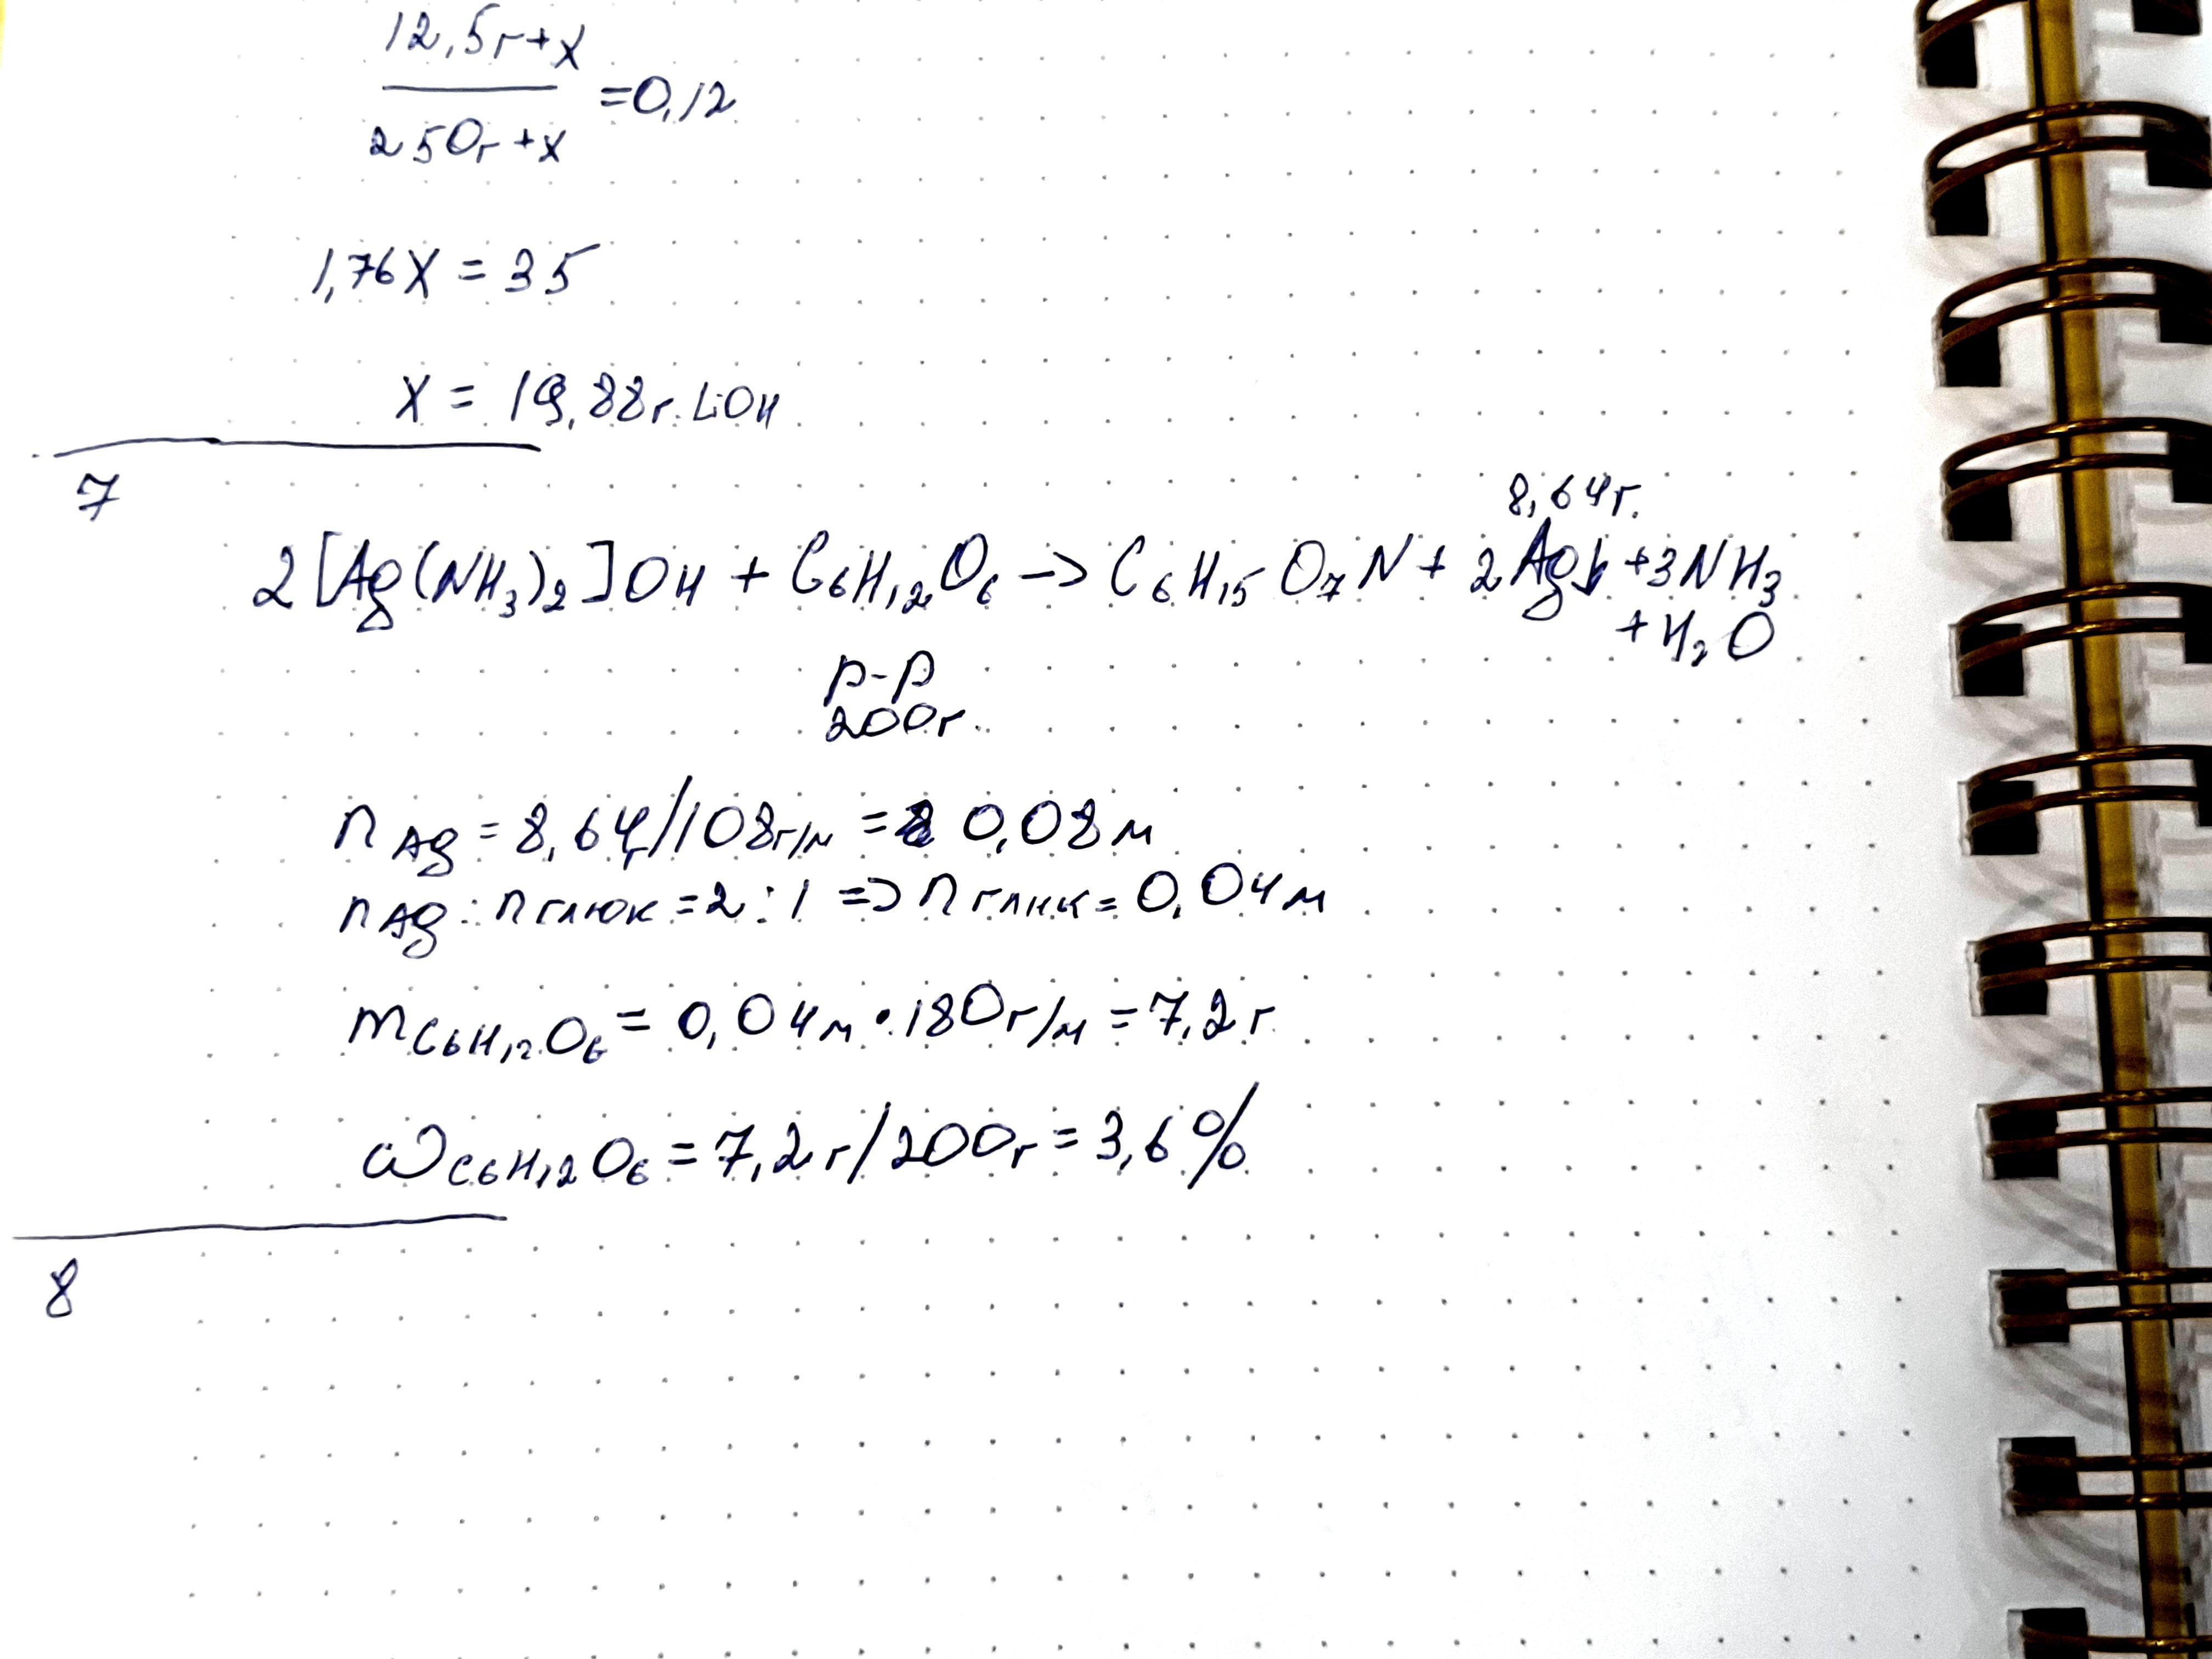 12,5г+x
250г+x
=0,12
1,76x = 35
x = 19,88г LiOH
7
8,64г.
2[Ag(NH₃)₂]OH + C₆H₁₂O₆ -> C₆H₁₅O₇N + 2Ag↓ +3NH₃
+ H₂O
р-р
200г.
n Ag = 8,64г/108г/м = 0,08м
n Ag : n глюк = 2 : 1 => n глюк = 0,04м
m C₆H₁₂O₆ = 0,04м · 180г/м = 7,2г
ω C₆H₁₂O₆ = 7,2г/200г = 3,6%
8